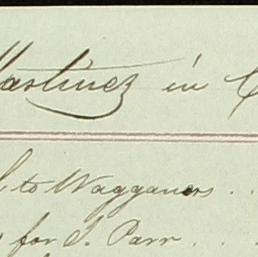 Martinez in
to Waggoners . .
for J. Parr . .